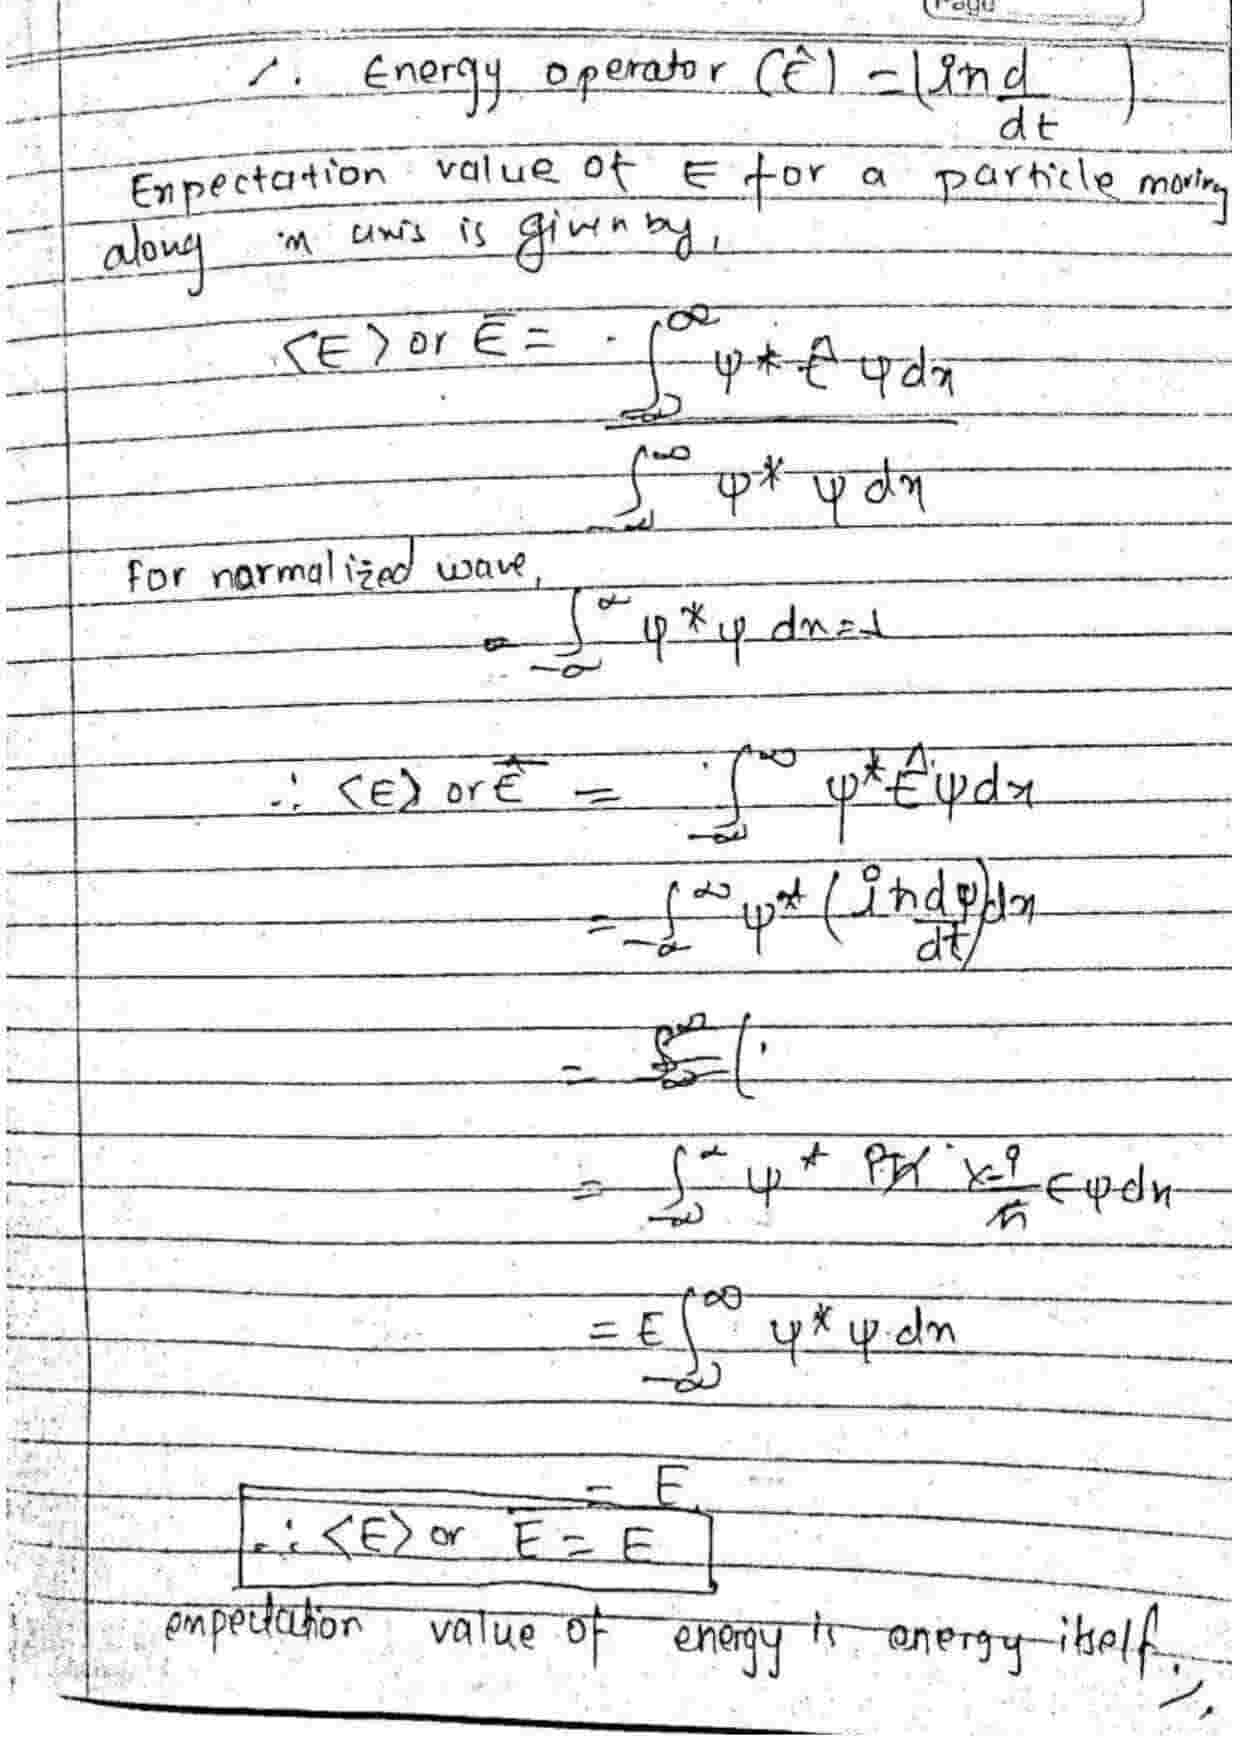 Page
∴ Energy operator (Ê) = (iħ d/dt)
Expectation value of E for a particle moving
along x axis is given by,
<E> or E̅ = ∫_{-∞}^{∞} ψ* Ê ψ dx
∫_{-∞}^{∞} ψ* ψ dx
For normalized wave,
= ∫_{-∞}^{∞} ψ* ψ dx = 1
∴ <E> or Ê̅ = ∫_{-∞}^{∞} ψ* Ê ψ dx
= ∫_{-∞}^{∞} ψ* (iħ dψ/dt) dx
= (
= ∫_{-∞}^{∞} ψ* iħ × -i/ħ E ψ dx
= E ∫_{-∞}^{∞} ψ* ψ dx
= E.
∴ <E> or E̅ = E
expectation value of energy is energy itself.